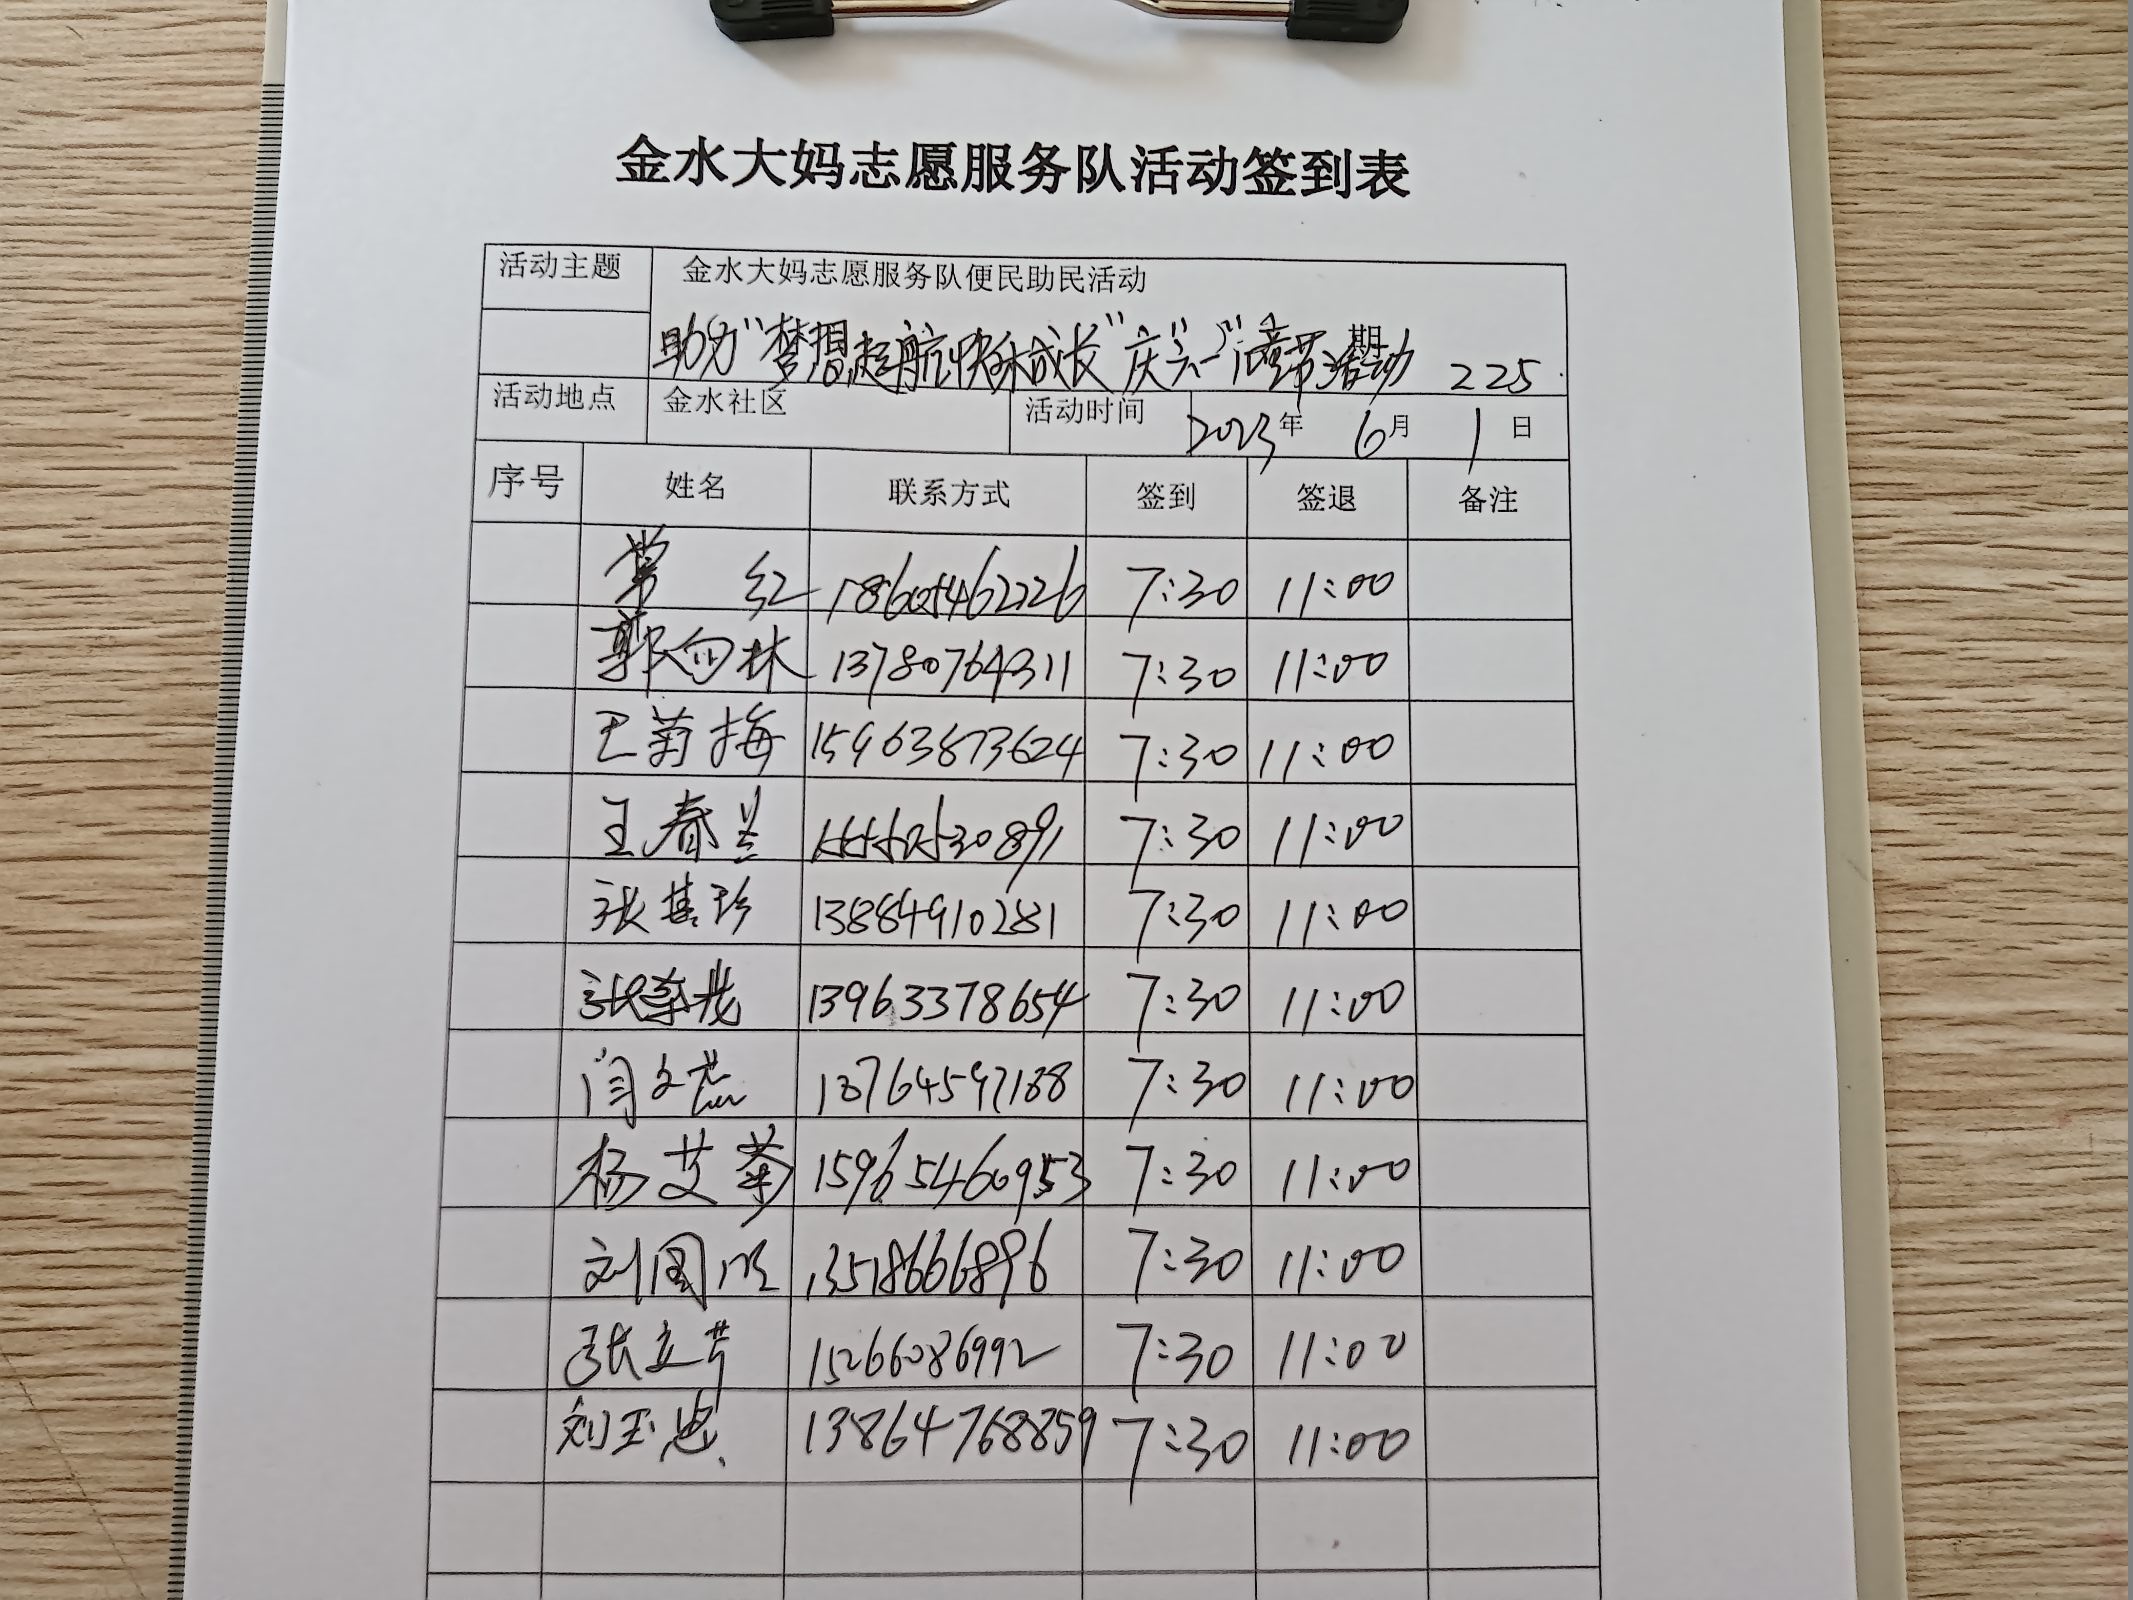 金水大妈志愿服务队活动签到表
活动主题 金水大妈志愿服务队便民助民活动
助力“梦想起航快乐成长”庆“六一”儿童节活动 期 225
活动地点 金水社区 活动时间 2023年 6月 1日
序号 姓名 联系方式 签到 签退 备注
常红 18605462226 7:30 11:00
郭向林 13780764311 7:30 11:00
王菊梅 15963873624 7:30 11:00
王春兰 7:30 11:00
张其珍 13884910281 7:30 11:00
张 13963378654 7:30 11:00
闫文 18764597188 7:30 11:00
杨艾菊 15965460953 7:30 11:00
刘国 13518666896 7:30 11:00
张立芹 15266086992 7:30 11:00
刘玉忠 13864768859 7:30 11:00